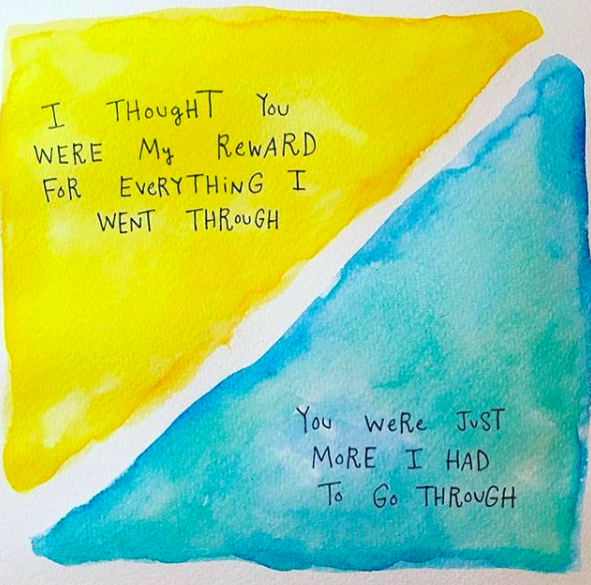 I THOUGHT YOU
WERE My REWARD
FOR EVERYTHING I
WENT THROUGH
YOU WERE JUST
MORE I HAD
To Go THROUGH